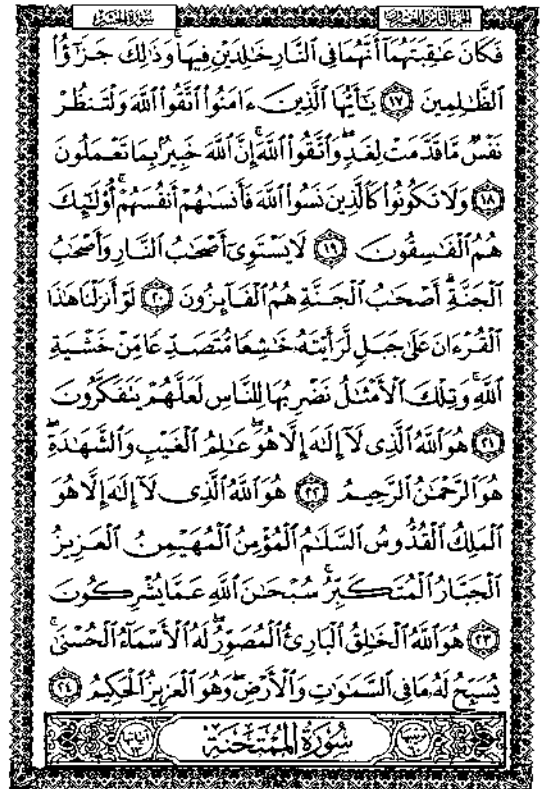 سُورَةُ الحَشْرِ الجزء الثامن والعشرون
فَكَانَ عَٰقِبَتَهُمَآ أَنَّهُمَا فِي ٱلنَّارِ خَٰلِدَيْنِ فِيهَاۚ وَذَٰلِكَ جَزَٰٓؤُاْ
ٱلظَّٰلِمِينَ ١٧ يَٰٓأَيُّهَا ٱلَّذِينَ ءَامَنُواْ ٱتَّقُواْ ٱللَّهَ وَلْتَنظُرْ
نَفْسٌ مَّا قَدَّمَتْ لِغَدٍۖ وَٱتَّقُواْ ٱللَّهَۚ إِنَّ ٱللَّهَ خَبِيرٌۢ بِمَا تَعْمَلُونَ
١٨ وَلَا تَكُونُواْ كَٱلَّذِينَ نَسُواْ ٱللَّهَ فَأَنسَىٰهُمْ أَنفُسَهُمْۚ أُوْلَٰٓئِكَ
هُمُ ٱلْفَٰسِقُونَ ١٩ لَا يَسْتَوِيٓ أَصْحَٰبُ ٱلنَّارِ وَأَصْحَٰبُ
ٱلْجَنَّةِۚ أَصْحَٰبُ ٱلْجَنَّةِ هُمُ ٱلْفَآئِزُونَ ٢٠ لَوْ أَنزَلْنَا هَٰذَا
ٱلْقُرْءَانَ عَلَىٰ جَبَلٍ لَّرَأَيْتَهُۥ خَٰشِعًا مُّتَصَدِّعًا مِّنْ خَشْيَةِ
ٱللَّهِۚ وَتِلْكَ ٱلْأَمْثَٰلُ نَضْرِبُهَا لِلنَّاسِ لَعَلَّهُمْ يَتَفَكَّرُونَ
٢١ هُوَ ٱللَّهُ ٱلَّذِي لَآ إِلَٰهَ إِلَّا هُوَۖ عَٰلِمُ ٱلْغَيْبِ وَٱلشَّهَٰدَةِۖ
هُوَ ٱلرَّحْمَٰنُ ٱلرَّحِيمُ ٢٢ هُوَ ٱللَّهُ ٱلَّذِي لَآ إِلَٰهَ إِلَّا هُوَ
ٱلْمَلِكُ ٱلْقُدُّوسُ ٱلسَّلَٰمُ ٱلْمُؤْمِنُ ٱلْمُهَيْمِنُ ٱلْعَزِيزُ
ٱلْجَبَّارُ ٱلْمُتَكَبِّرُۚ سُبْحَٰنَ ٱللَّهِ عَمَّا يُشْرِكُونَ
٢٣ هُوَ ٱللَّهُ ٱلْخَٰلِقُ ٱلْبَارِئُ ٱلْمُصَوِّرُۖ لَهُ ٱلْأَسْمَآءُ ٱلْحُسْنَىٰۚ
يُسَبِّحُ لَهُۥ مَا فِي ٱلسَّمَٰوَٰتِ وَٱلْأَرْضِۖ وَهُوَ ٱلْعَزِيزُ ٱلْحَكِيمُ ٢٤
سُورَةُ المُمْتَحنَةِ